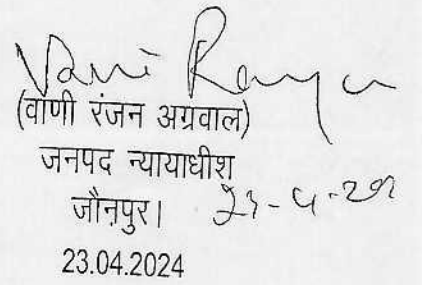 Vani Ranjan
(वाणी रंजन अग्रवाल)
जनपद न्यायाधीश
जौनपुर।
23.04.2024